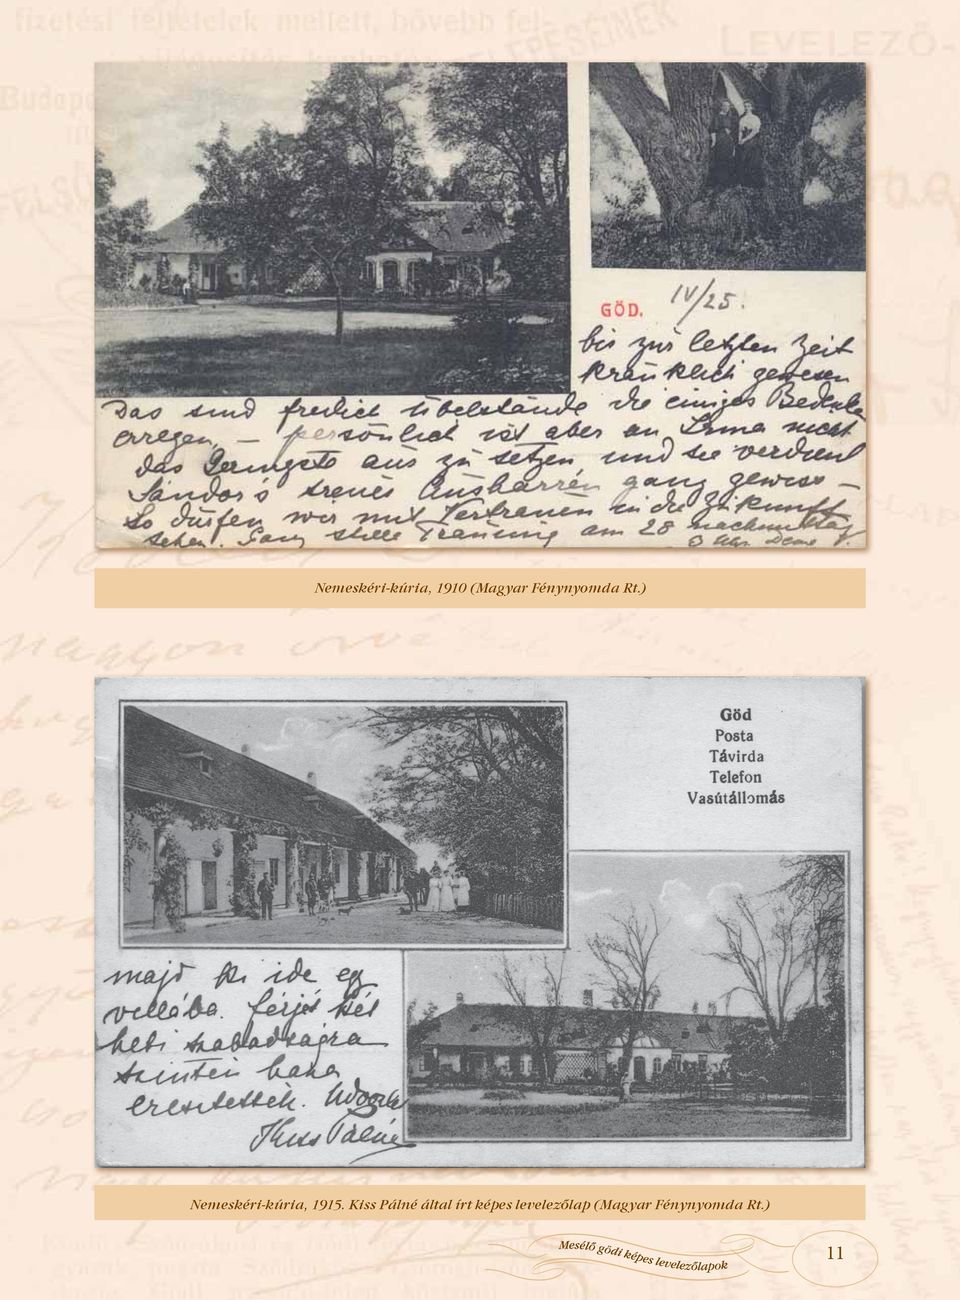 GÖD.
IV/25.
bis zur letzten Zeit
kränklich gewesen
Das sind freilich Übelstände die einiges Bedenken
erregen, — persönlich ist aber an Irma nicht
das Geringste aus zu setzen und sie verdient
Sándor's treues Ausharren ganz gewiss —
So dürfen wir mit Vertrauen in die Zukunft
sehen. Ganz stille Trauung am 28 nachmittag
3 Uhr.
Nemeskéri-kúria, 1910 (Magyar Fénynyomda Rt.)
Göd
Posta
Távirda
Telefon
Vasútállomás
majd ki ide egy
férjét két
heti szabadságra
szintén haza
eresztették.
Kiss Pálné
Nemeskéri-kúria, 1915. Kiss Pálné által írt képes levelezőlap (Magyar Fénynyomda Rt.)
Mesélő gödi képes levelezőlapok
11